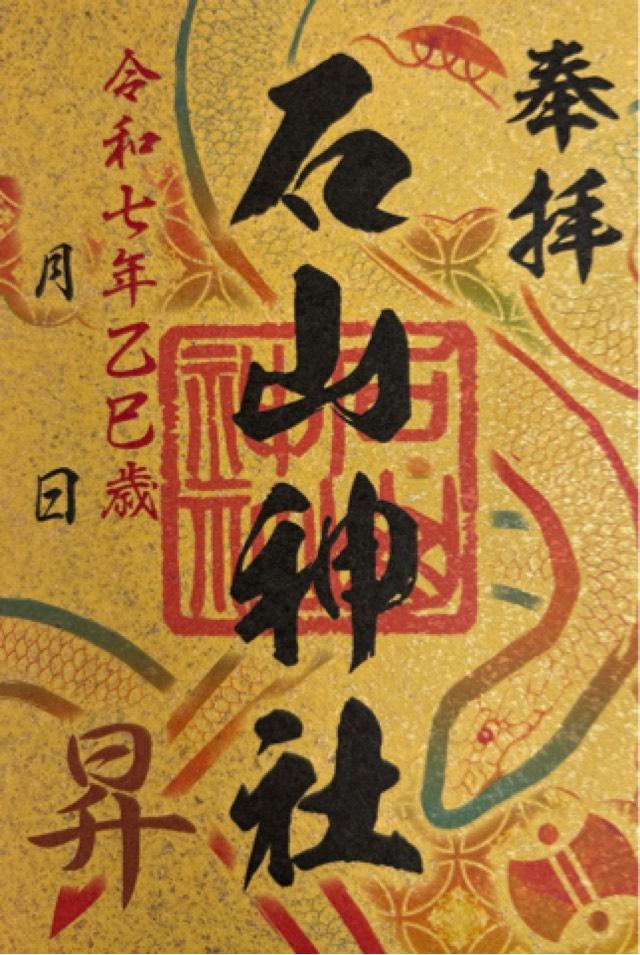 奉拝
石山神社
石山神社
令和七年乙巳歳
月 日
昇